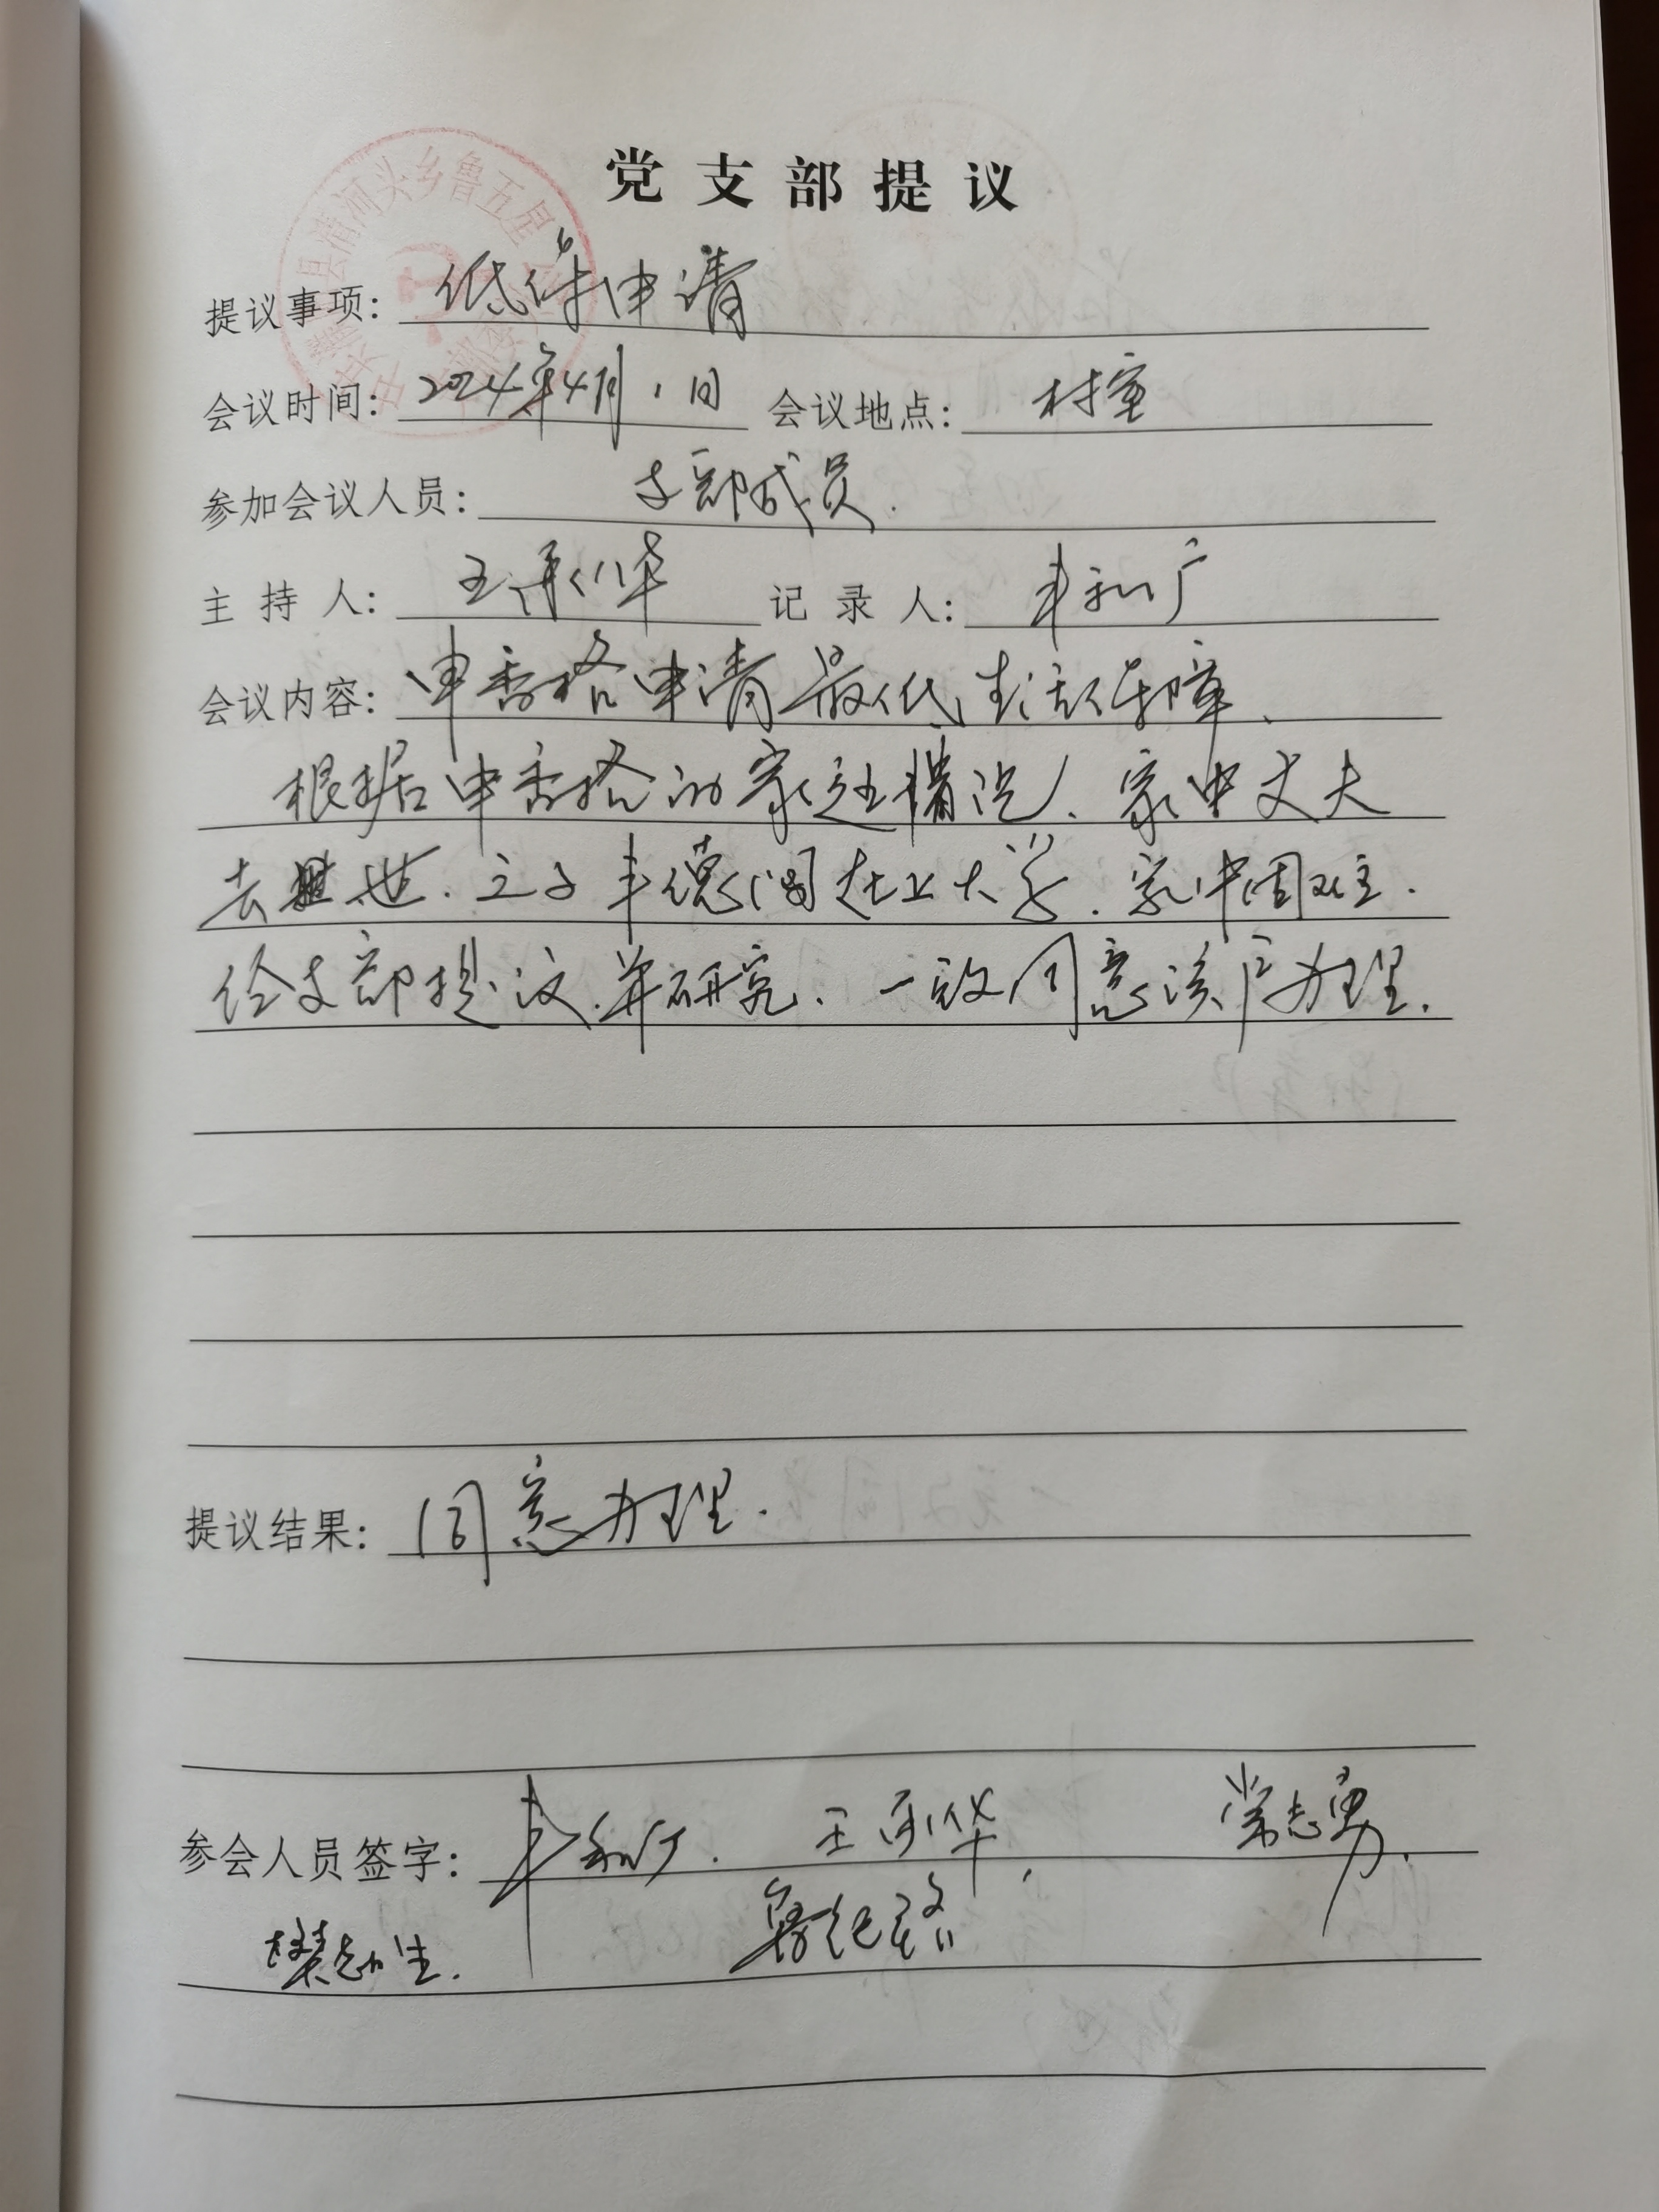 党支部提议
提议事项: 低保申请
会议时间: 2024年4月1日 会议地点: 村室
参加会议人员: 支部成员.
主持人: 王承华 记录人: 丰和广
会议内容: 申香格申请最低生活保障、
根据申香格的家庭情况、家中丈夫
去世. 之子丰德阔在上大学. 家中困难.
经支部提议.并研究、一致同意该户办理.
提议结果: 同意办理.
参会人员签字: 丰和广. 王承华, 常志勇.
樊志生.
县清河头乡鲁五星